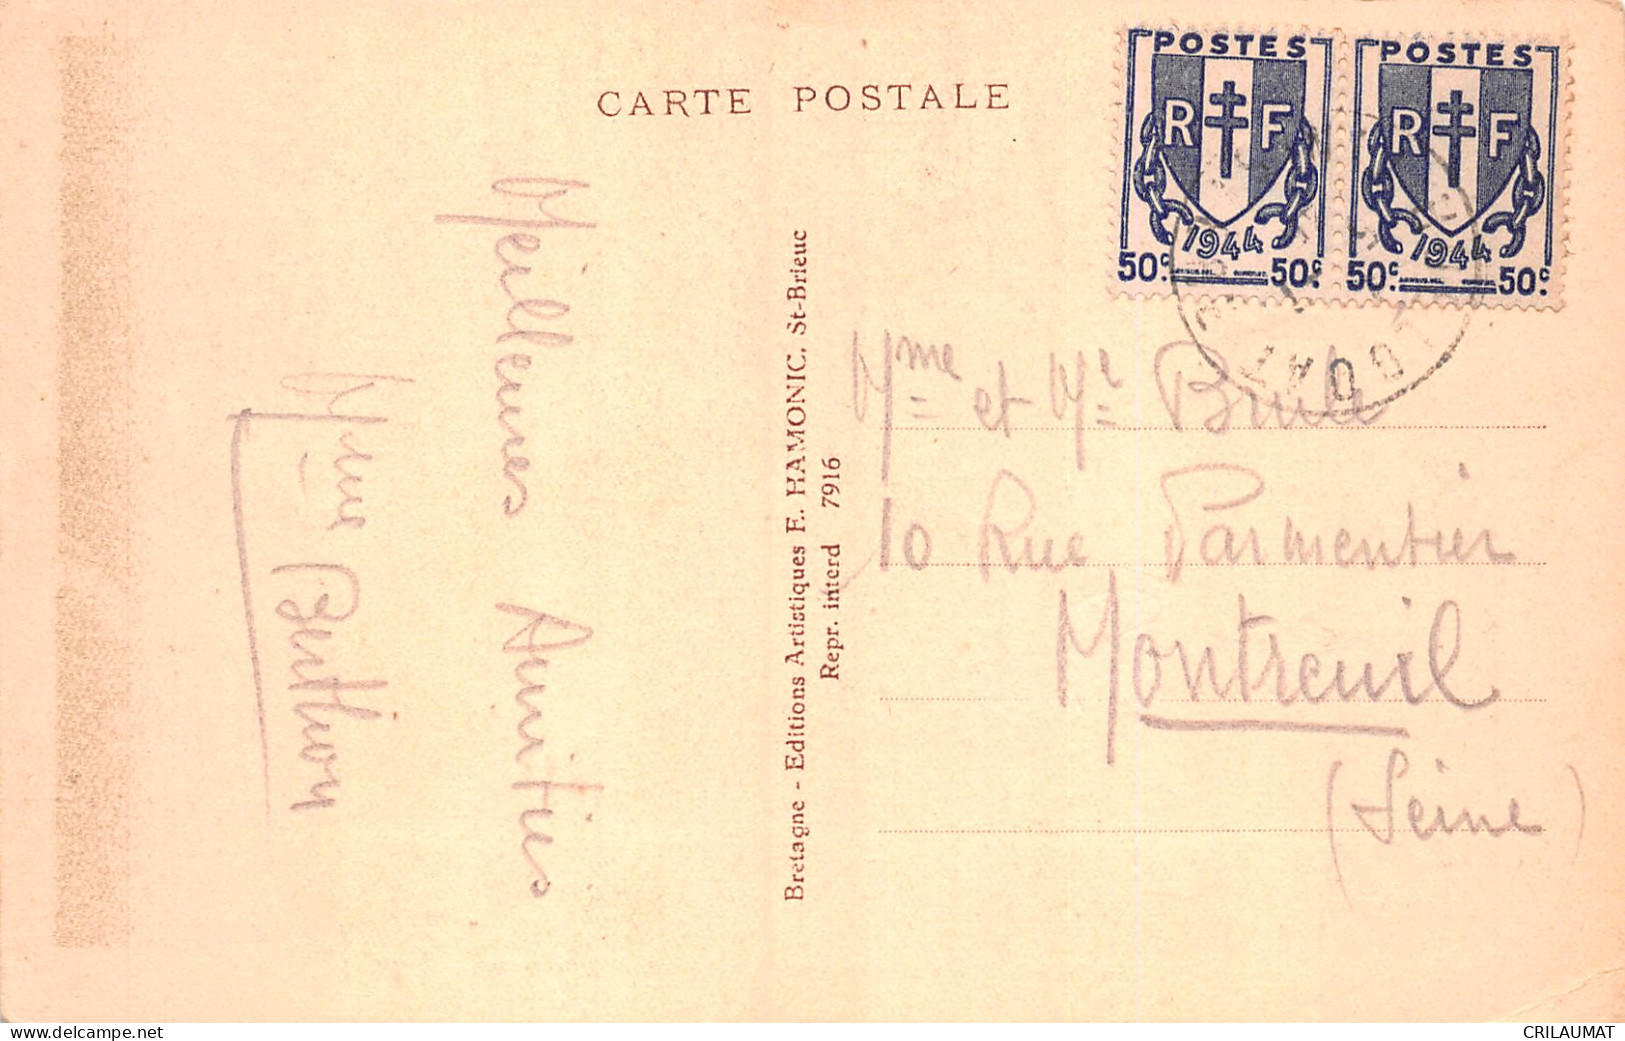 CARTE POSTALE
POSTES
R F
1944
50c. 50c.
POSTES
R F
1944
50c. 50c.
Meilleures Amitiés
Mme Berthon
Bretagne - Editions Artistiques E. HAMONIC, St-Brieuc
Repr. interd 7916
Mme et Mr Brulé
10 Rue Parmentier
Montreuil
(Seine)
myfrenchstamp.delcampe.net
CRILAUMAT